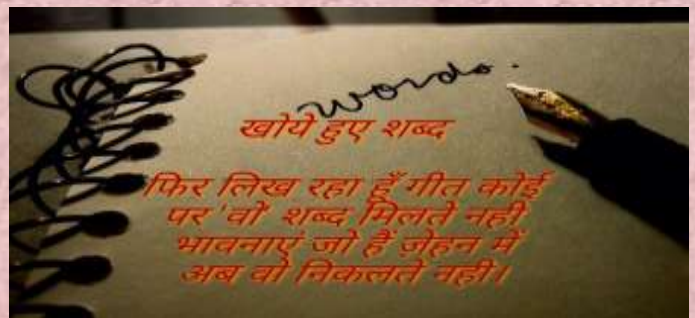 words.
खोये हुए शब्द
फिर लिख रहा हूँ गीत कोई
पर 'वो' शब्द मिलते नही
भावनाएं जो हैं ज़ेहन में
अब वो निकलते नही।